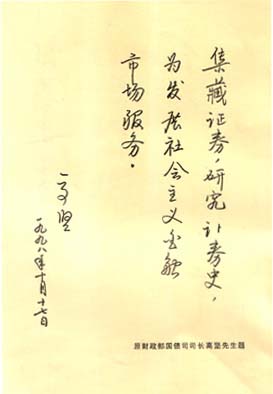 集藏证券，研究证券史，
为发展社会主义金融
市场服务。
高坚
一九九八年十月十七日
原财政部国债司司长高坚先生题